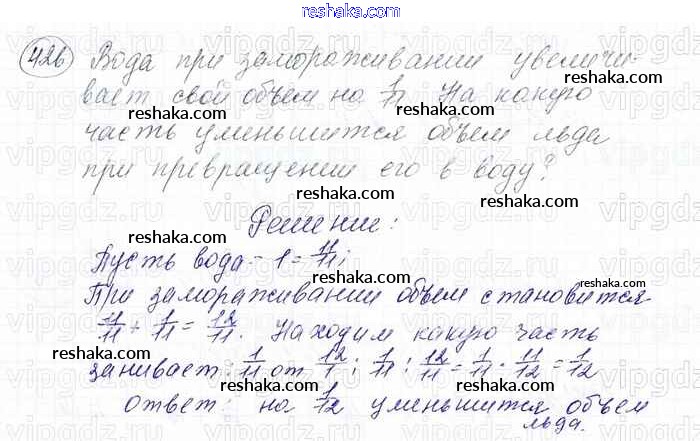 reshaka.com
426 Вода при замораживании увеличи-
reshaka.com
вает свой объем на 1/11. На какую
reshaka.com
часть уменьшится объем льда
reshaka.com
при превращении его в воду?
reshaka.com
Решение:
reshaka.com
Пусть вода - 1 = 11/11;
reshaka.com
При замораживании объем становится
reshaka.com
11/11 + 1/11 = 12/11. Находим какую часть
reshaka.com
занивает: 1/11 от 12/1; 1/11 : 12/11 = 1/11 · 11/12 = 1/12
reshaka.com
ответ: на 1/12 уменьшится объем
льда.
reshaka.com
vipgdz.ru